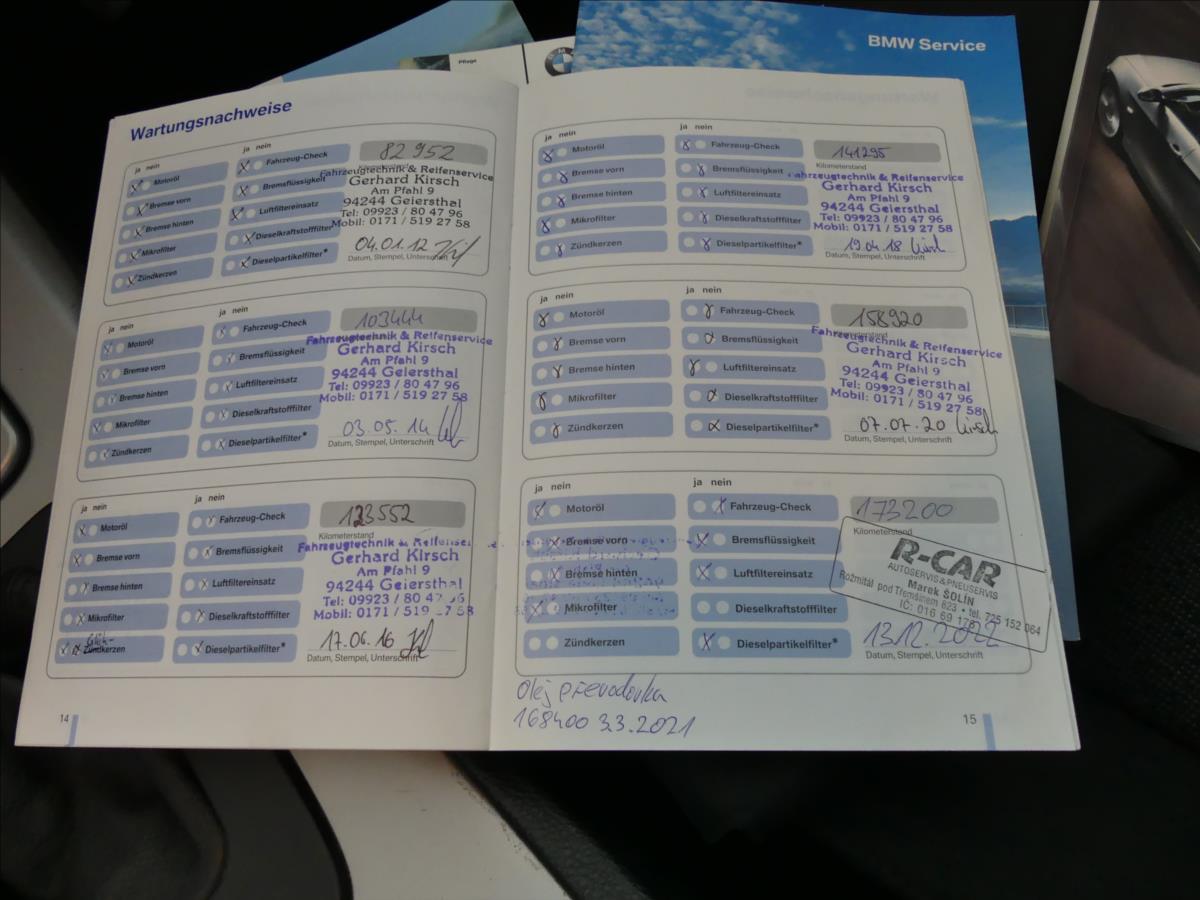 BMW Service
Pflege
Wartungsnachweise
ja nein
ja nein
Motoröl
Bremse vorn
Bremse hinten
Mikrofilter
Zündkerzen
Fahrzeug-Check
Bremsflüssigkeit
Luftfiltereinsatz
Dieselkraftstofffilter
Dieselpartikelfilter*
82 952
Fahrzeugtechnik & Reifenservice
Gerhard Kirsch
Am Pfahl 9
94244 Geiersthal
Tel: 09923 / 80 47 96
Mobil: 0171 / 519 27 58
04.01.12
Datum, Stempel, Unterschrift
ja nein
ja nein
Motoröl
Bremse vorn
Bremse hinten
Mikrofilter
Zündkerzen
Fahrzeug-Check
Bremsflüssigkeit
Luftfiltereinsatz
Dieselkraftstofffilter
Dieselpartikelfilter*
103444
Fahrzeugtechnik & Reifenservice
Gerhard Kirsch
Am Pfahl 9
94244 Geiersthal
Tel: 09923 / 80 47 96
Mobil: 0171 / 519 27 58
03.05.14
Datum, Stempel, Unterschrift
ja nein
ja nein
Motoröl
Bremse vorn
Bremse hinten
Mikrofilter
Zündkerzen
Fahrzeug-Check
Bremsflüssigkeit
Luftfiltereinsatz
Dieselkraftstofffilter
Dieselpartikelfilter*
123552
Kilometerstand
Fahrzeugtechnik & Reifenser
Gerhard Kirsch
Am Pfahl 9
94244 Geiersthal
Tel: 09923 / 80 47 96
Mobil: 0171 / 519 27 58
17.06.16
Datum, Stempel, Unterschrift
14
ja nein
ja nein
Motoröl
Bremse vorn
Bremse hinten
Mikrofilter
Zündkerzen
Fahrzeug-Check
Bremsflüssigkeit
Luftfiltereinsatz
Dieselkraftstofffilter
Dieselpartikelfilter*
141295
Kilometerstand
Fahrzeugtechnik & Reifenservice
Gerhard Kirsch
Am Pfahl 9
94244 Geiersthal
Tel: 09923 / 80 47 96
Mobil: 0171 / 519 27 58
19.04.18 Kirsch
Datum, Stempel, Unterschrift
ja nein
ja nein
Motoröl
Bremse vorn
Bremse hinten
Mikrofilter
Zündkerzen
Fahrzeug-Check
Bremsflüssigkeit
Luftfiltereinsatz
Dieselkraftstofffilter
Dieselpartikelfilter*
158920
Fahrzeugtechnik & Reifenservice
Gerhard Kirsch
Am Pfahl 9
94244 Geiersthal
Tel: 09923 / 80 47 96
Mobil: 0171 / 519 27 58
07.07.20 Kirsch
Datum, Stempel, Unterschrift
ja nein
ja nein
Motoröl
Bremse vorn
Bremse hinten
Mikrofilter
Zündkerzen
Fahrzeug-Check
Bremsflüssigkeit
Luftfiltereinsatz
Dieselkraftstofffilter
Dieselpartikelfilter*
173200
Kilometerstand
R-CAR
AUTOSERVIS & PNEUSERVIS
Marek ŠOLÍN
Rožmitál pod Třemšínem 823 • tel. 725 152 064
IČ: 016 69 176
13.12.2022
Datum, Stempel, Unterschrift
Olej převodovka
168400 3.3.2021
15